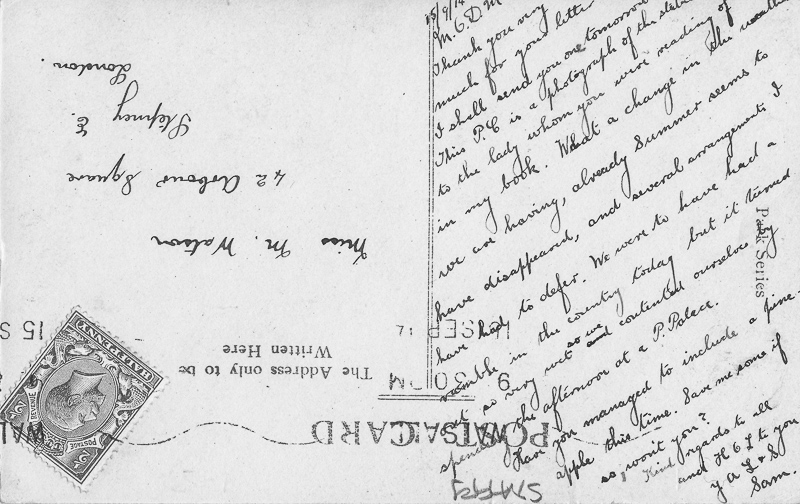 15/9/14
M.G.D.M
Thank you very
much for your letter
I shall send you one tomorrow
This P.C is a photograph of the statue
to the lady whom you were reading of
in my book. What a change in the weather
we are having, already Summer seems to
have disappeared, and several arrangements I
have had to defer. We were to have had a
ramble in the country today but it turned
out so very wet so we and contented ourselves by
spending the afternoon at a P. Palace.
Have you managed to include a pine
apple this time. Save me some if
so, won't you?
Kind regards to all
and H & L to you
Y A L & S
Sam.
Park Series
POSTCARD
The Address only to be
Written Here
Miss M. Watson
42 Arbour Square
Stepney E.
London.
HALFPENNY
POSTAGE
REVENUE
9 30PM
15 SEP 14
15 S
WAL